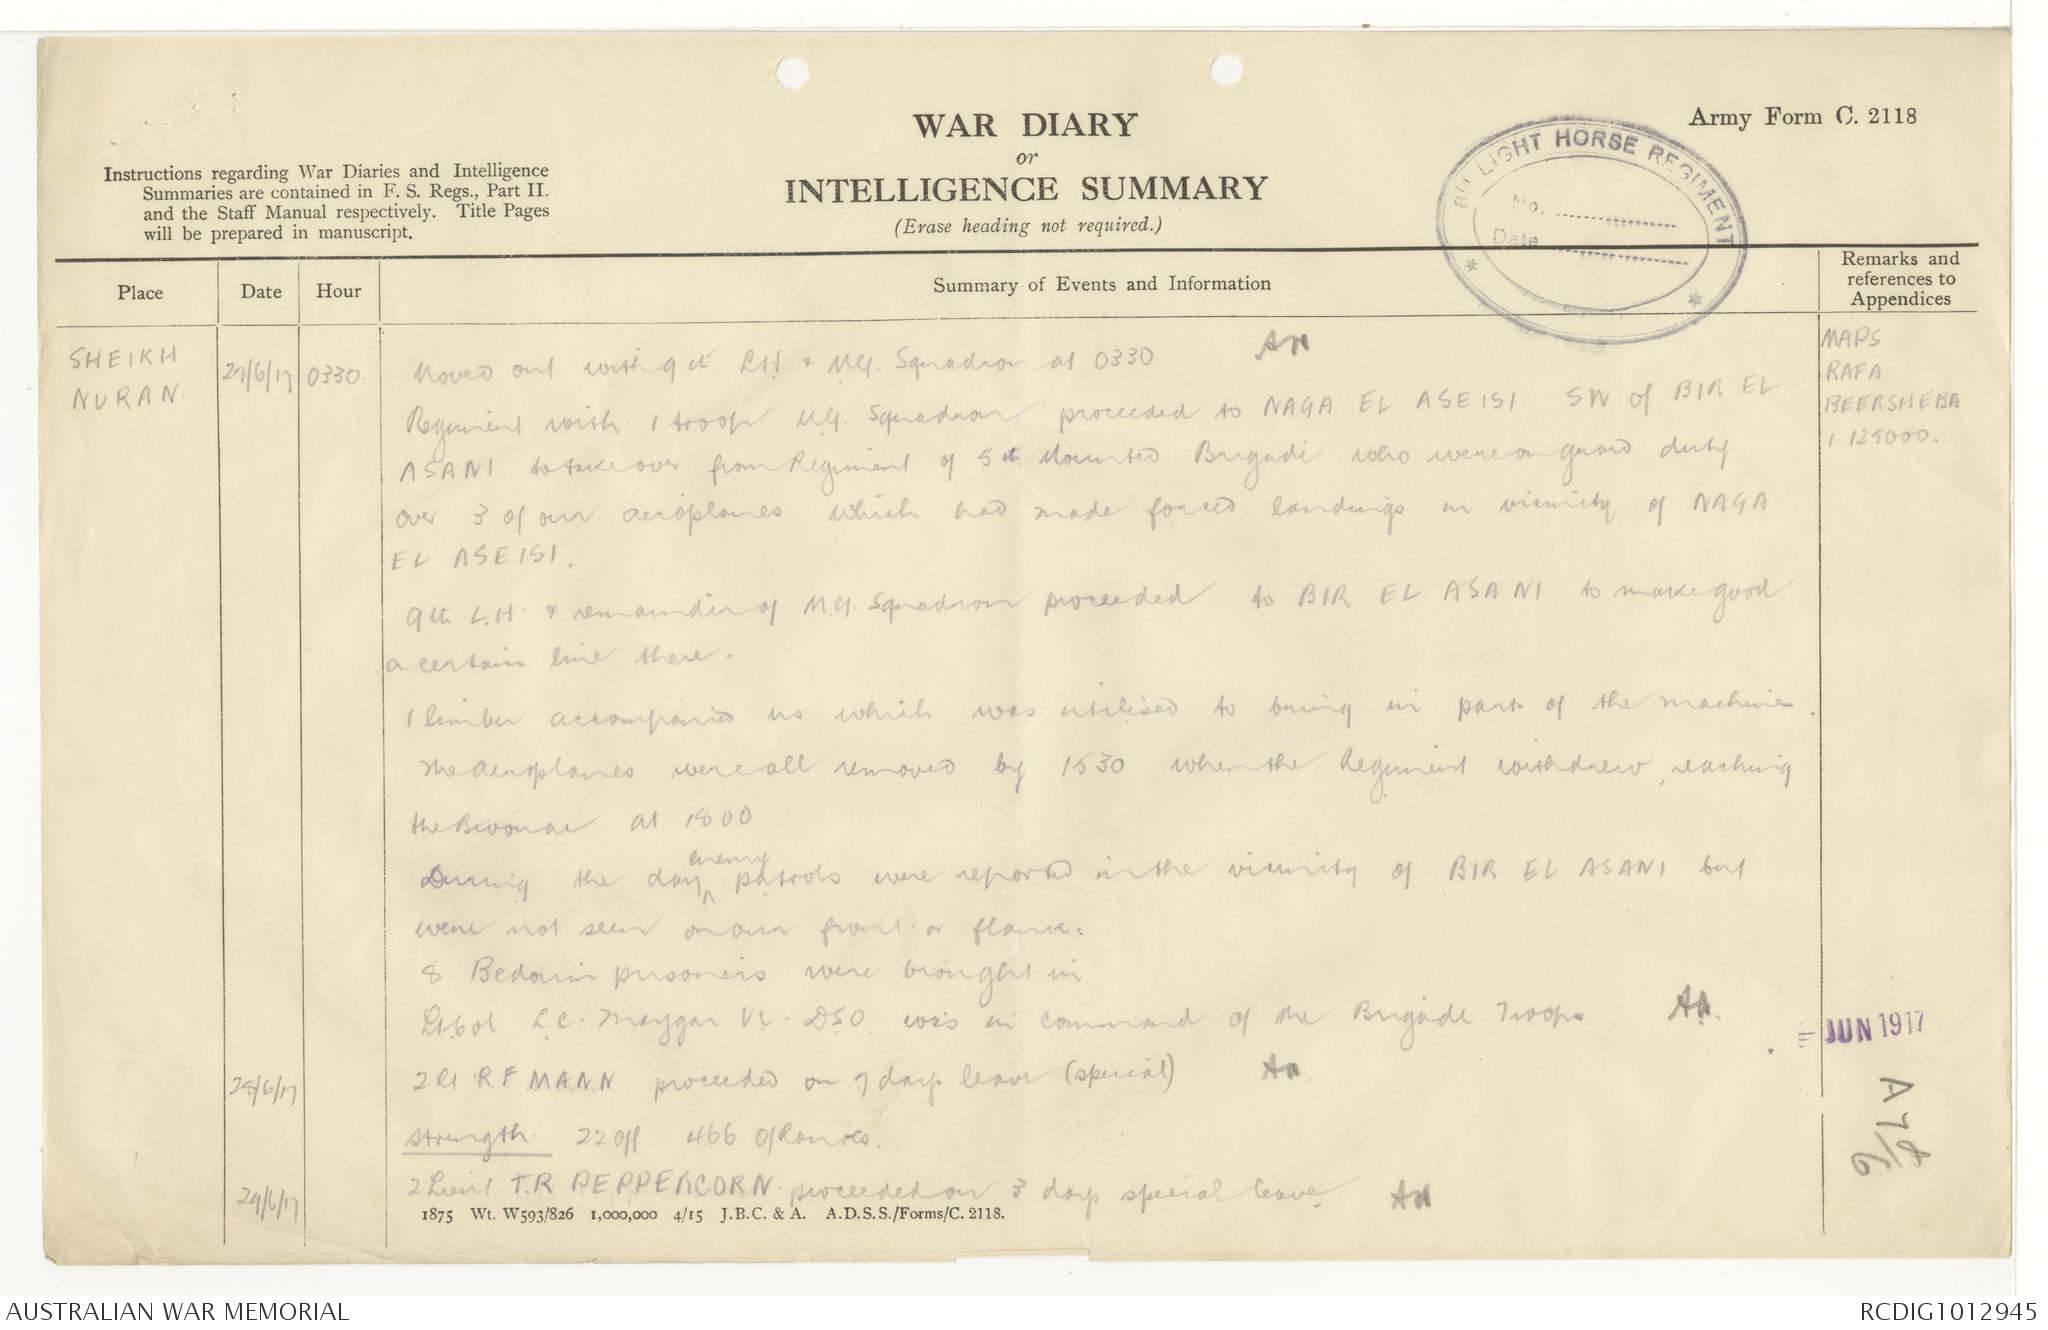 WAR DIARY
or
INTELLIGENCE SUMMARY
(Erase heading not required.)
Army Form C. 2118
Instructions regarding War Diaries and Intelligence
Summaries are contained in F. S. Regs., Part II.
and the Staff Manual respectively. Title Pages
will be prepared in manuscript.
8TH LIGHT HORSE REGIMENT
No.
Date
Place
Date
Hour
Summary of Events and Information
Remarks and
references to
Appendices
SHEIKH
NURAN
27/6/17
0330
Moved out with 9th LH & M.G. Squadron at 0330
Regiment with 1 troop M.G. Squadron proceeded to NAGA EL ASEISI SW of BIR EL
ASANI to take over from Regiment of 5th Mounted Brigade who were on guard duty
over 3 of our aeroplanes which had made forced landings in vicinity of NAGA
EL ASEISI.
9th L.H. & remainder of M.G. Squadron proceeded to BIR EL ASANI to make good
a certain line there.
1 limber accompanied us which was utilised to bring in part of the machines.
The aeroplanes were all removed by 1530 when the Regiment withdrew, reaching
the Bivouac at 1800
During the day enemy patrols were reported in the vicinity of BIR EL ASANI but
were not seen on our front or flank.
8 Bedouin prisoners were brought in
Lt Col L.C. Maygar VC. DSO. was in command of the Brigade Troops.
28/6/17
2 Lt R F MANN proceeded on 7 days leave (special)
Strength 22 Off 466 O/Ranks.
29/6/17
2 Lieut T.R PEPPERCORN proceeded on 3 days special leave
MAPS
RAFA
BEERSHEBA
1.125000.
JUN 1917
1875 Wt. W593/826 1,000,000 4/15 J.B.C. & A. A.D.S.S./Forms/C. 2118.
AUSTRALIAN WAR MEMORIAL
RCDIG1012945